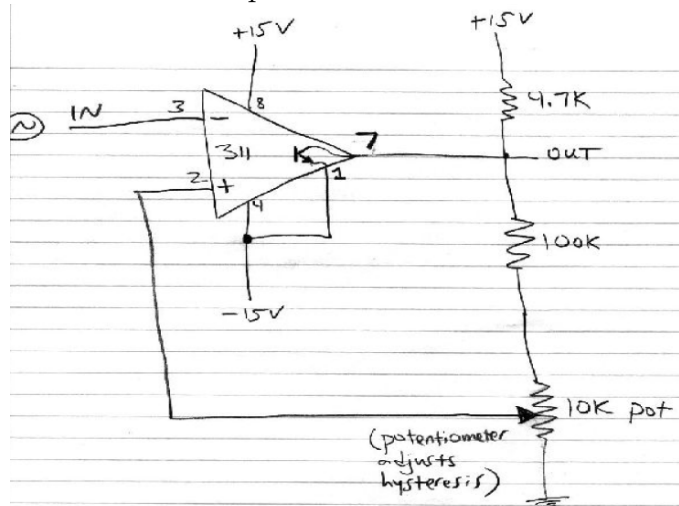 +15V
+15V
IN
3
-
8
4.7K
311
7
OUT
1
2
+
4
100K
-15V
10K pot
(potentiometer
adjusts
hysteresis)